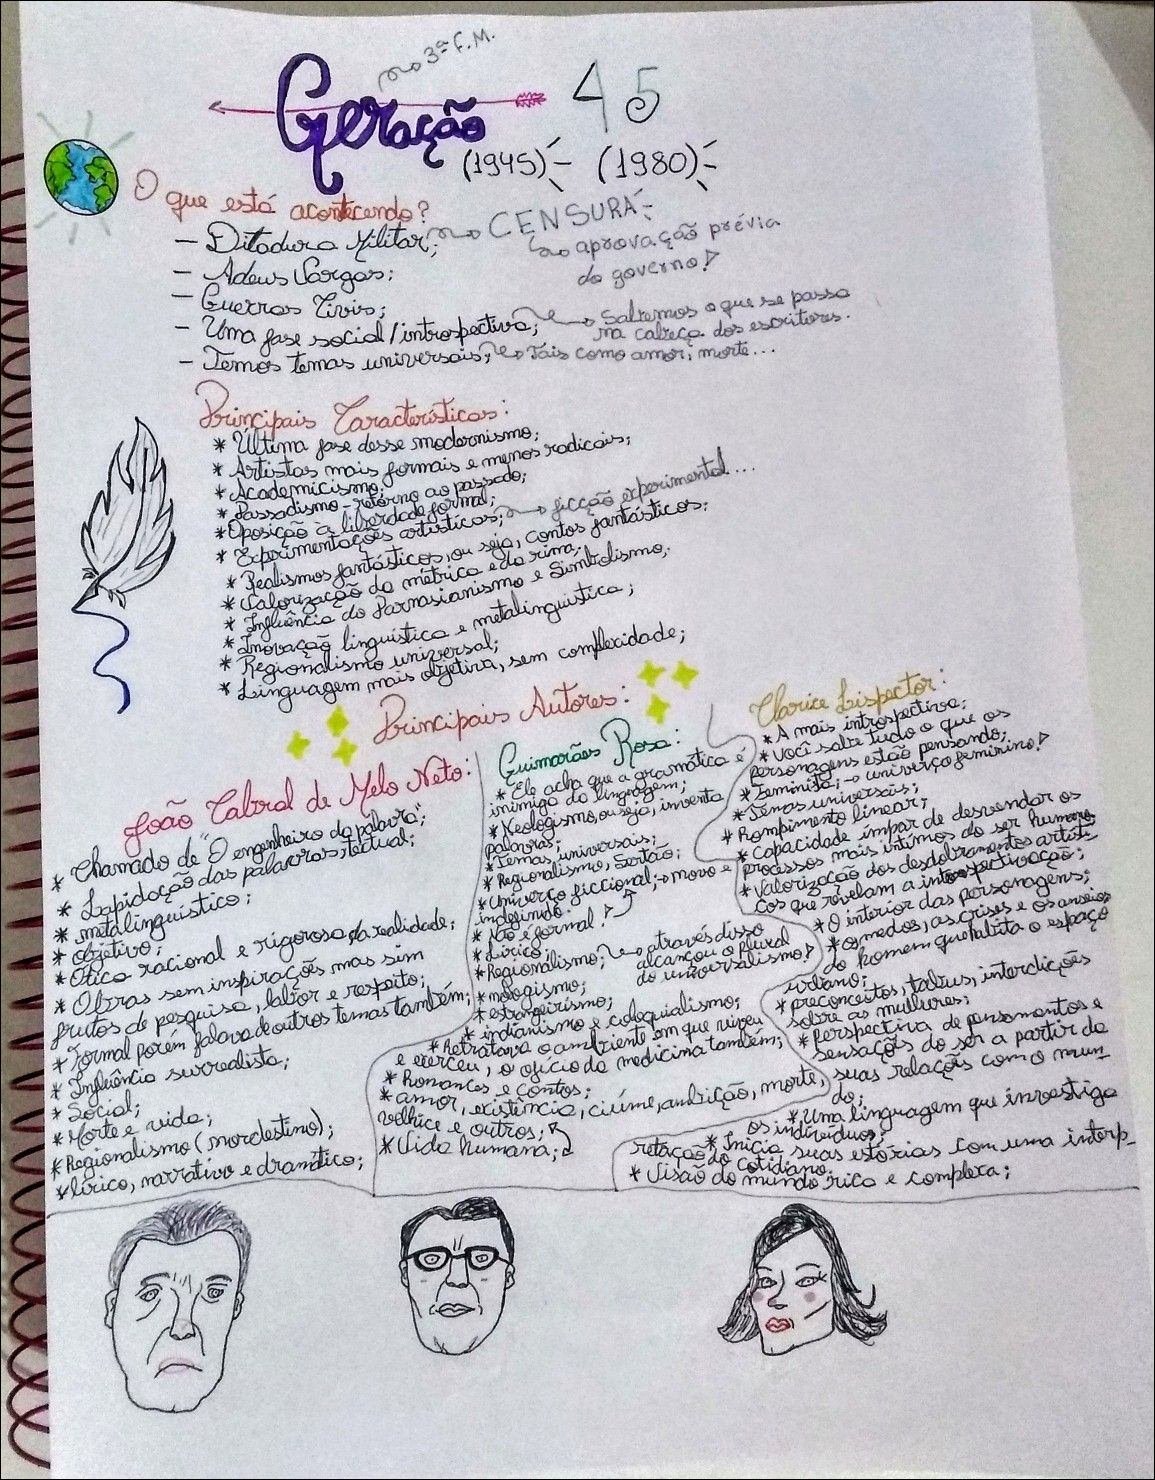 3ª F.M.
Geração 45
(1945) - (1980)
O que está acontecendo?
- Ditadura Militar; CENSURA
aprovação prévia
do governo!
- Adeus Vargas;
- Guerras Civis;
- Uma fase social/introspectiva; Sabemos o que se passa
na cabeça dos escritores.
- Temos temas universais; Tais como amor, morte...
Principais Características:
* Última fase desse modernismo;
* Artistas mais formais e menos radicais;
* Academicismo;
* Passadismo - retorno ao passado;
* Oposição à liberdade formal;
* Experimentações artísticas; ficção experimental...
* Realismos fantásticos, ou seja, contos fantásticos;
* Valorização da métrica e da rima;
* Influência do Parnasianismo e Simbolismo;
* Inovação linguística e metalinguística;
* Regionalismo universal;
* Linguagem mais objetiva, sem complexidade;
Principais Autores:
João Cabral de Melo Neto:
* Chamado de "O engenheiro da palavra";
* Lapidação das palavras, textual;
* metalinguístico;
* objetivo;
* Ótica racional e rigorosa da realidade;
* Obras sem inspirações mas sim
frutos de pesquisa, labor e respeito;
* Formal porém falava de outros temas também;
* Influência surrealista;
* Social;
* Morte e vida;
* Regionalismo (nordestino);
* lírico, narrativo e dramático;
Guimarães Rosa:
* Ele acha que a gramática é
inimiga da linguagem;
* Neologismo, ou seja, inventa
palavras;
* Temas universais;
* Regionalismo, Sertão;
* Universo ficcional; novo e
indefinido.
* Não é formal!
* Lírico;
* Regionalismo; através disso
alcançou o plural
do universalismo!
* neologismo;
* estrangeirismo;
* indianismo e coloquialismo;
* Retratava o ambiente em que viveu
e exerceu, o ofício da medicina também;
* Romances e contos;
* amor, existência, ciúme, ambição, morte,
velhice e outros;
* Vida humana;
Clarice Lispector:
* A mais introspectiva;
* Você sabe tudo o que os
personagens estão pensando;
* Feminista; universo feminino!
* Temas universais;
* Rompimento linear;
* Capacidade ímpar de desvendar os
processos mais íntimos do ser humano;
* Valorização dos desdobramentos artísti-
cos que revelam a introspectivação;
* O interior das personagens;
* os medos, as crises e os anseios
do homem que habita o espaço
urbano;
* preconceitos, tabus, interdições
sobre as mulheres;
* Perspectiva de pensamentos e
sensações do ser a partir de
suas relações com o mun-
do;
* Uma linguagem que investiga
os indivíduos;
* Inicia suas estórias com uma interp-
retação do cotidiano;
* Visão do mundo rica e complexa;